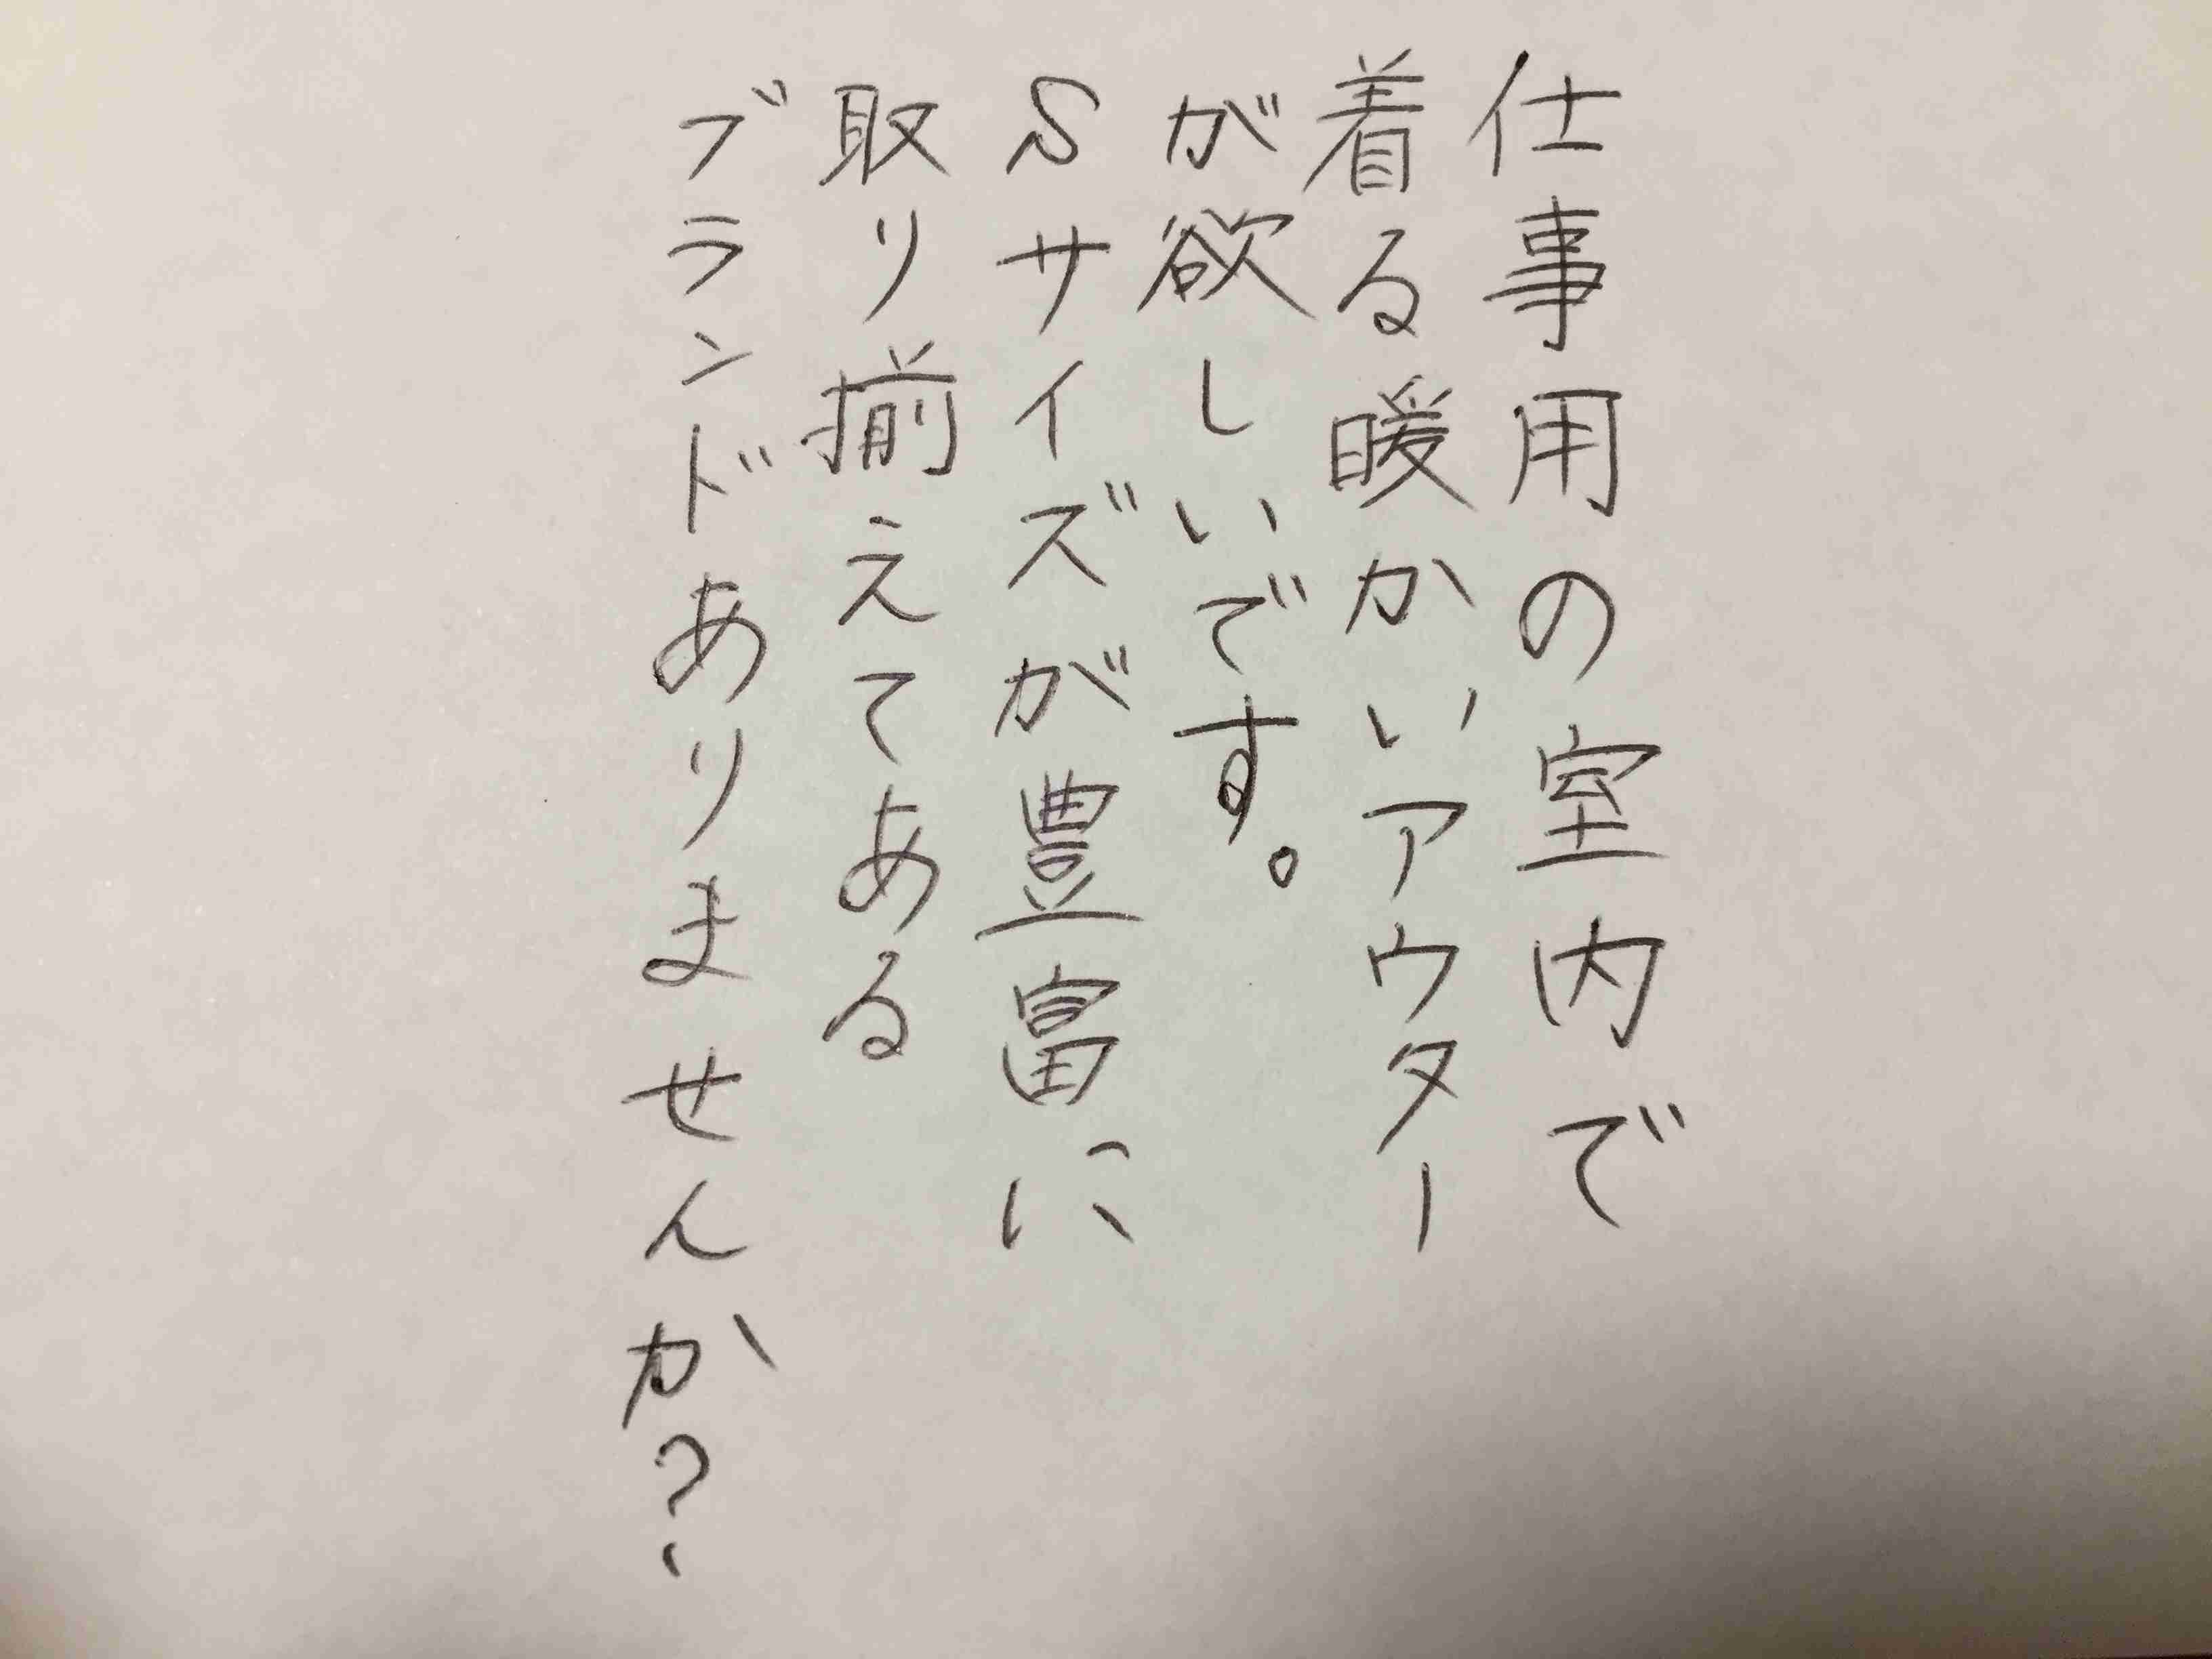 仕事用の室内で
着る暖かいアウター
が欲しいです。
Sサイズが豊富に
取り揃えてある
ブランドありませんか?